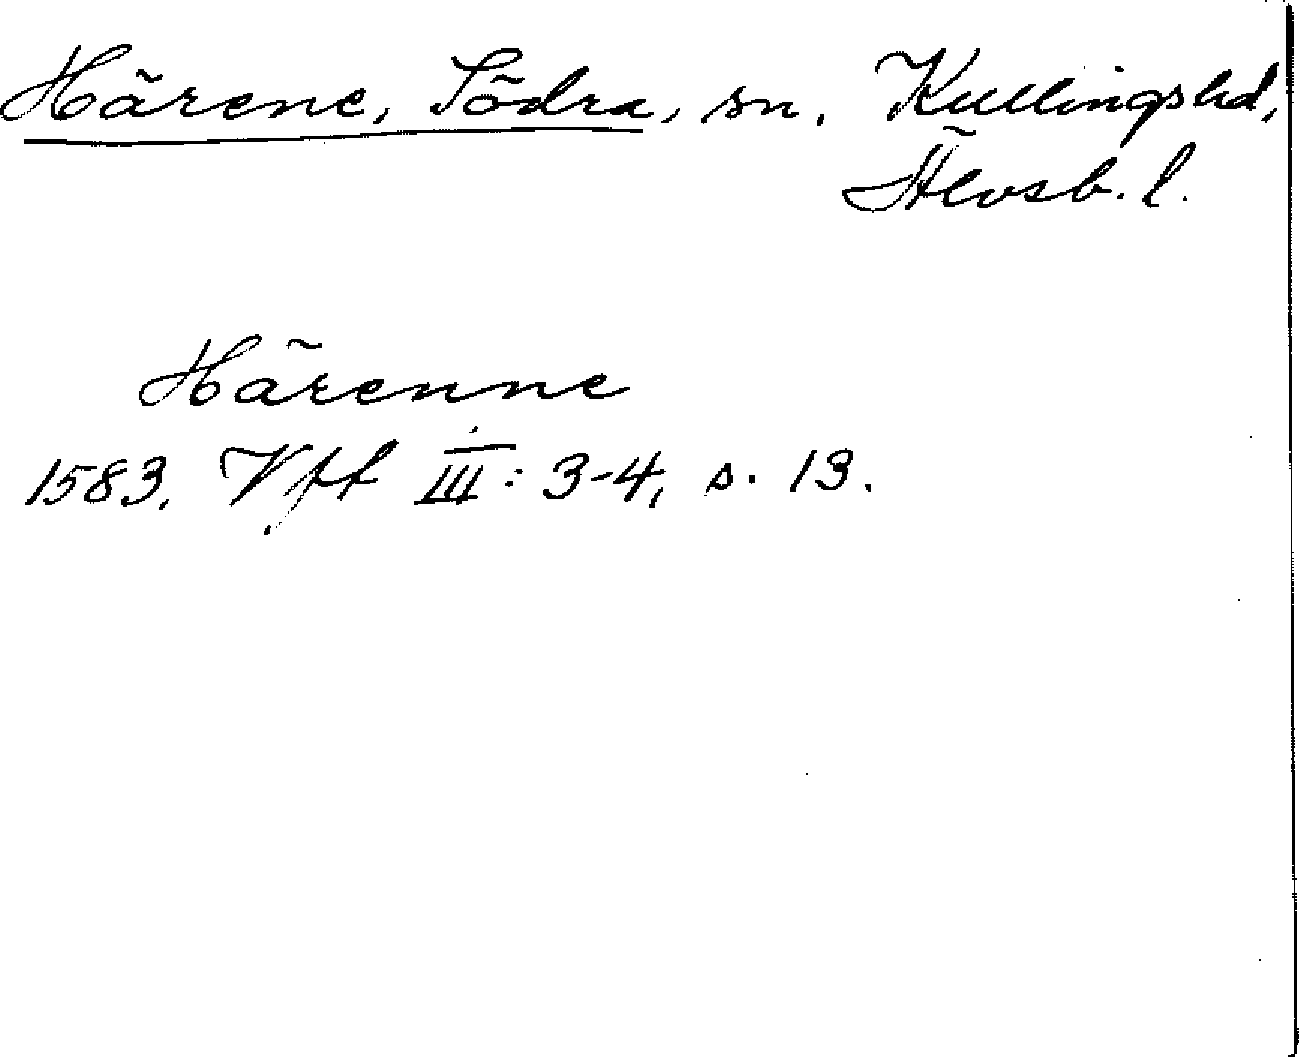 Härene, Södra, sn. Kullingshd,
Älvsb. l.
Härenne
1583. Vft III: 3-4, s. 13.